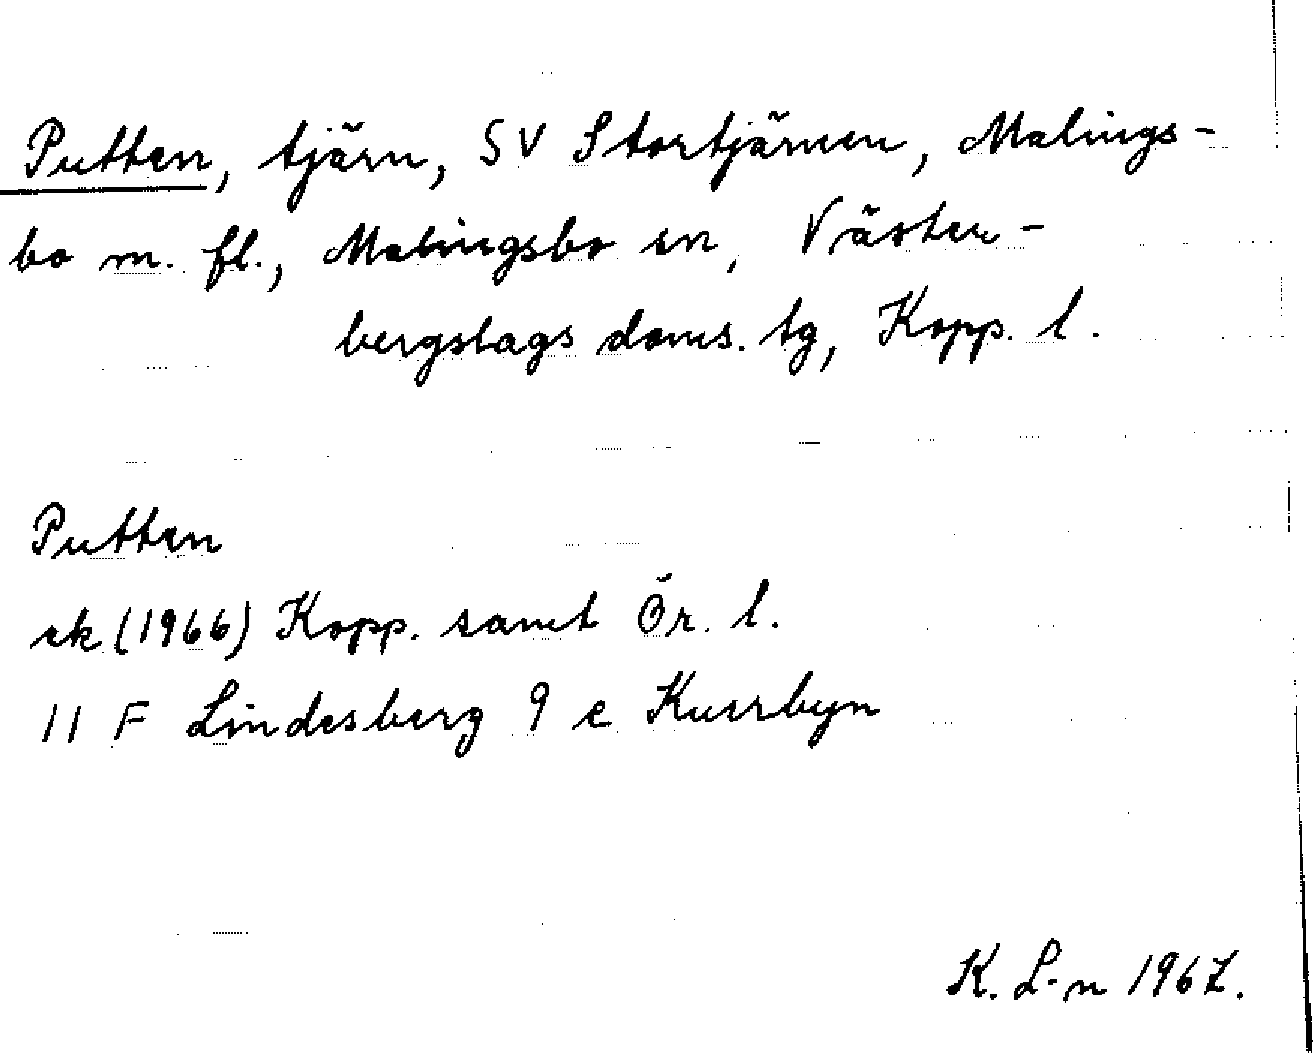 Putten, tjärn, SV Stortjärnen, Malings-
bo m. fl., Malingsbo sn, Väster-
bergslags doms. tg, Kopp. l.
Putten
ek (1966) Kopp. samt Ör. l.
11 F Lindesberg 9 e Kusrbyn
K. L-n 1967.